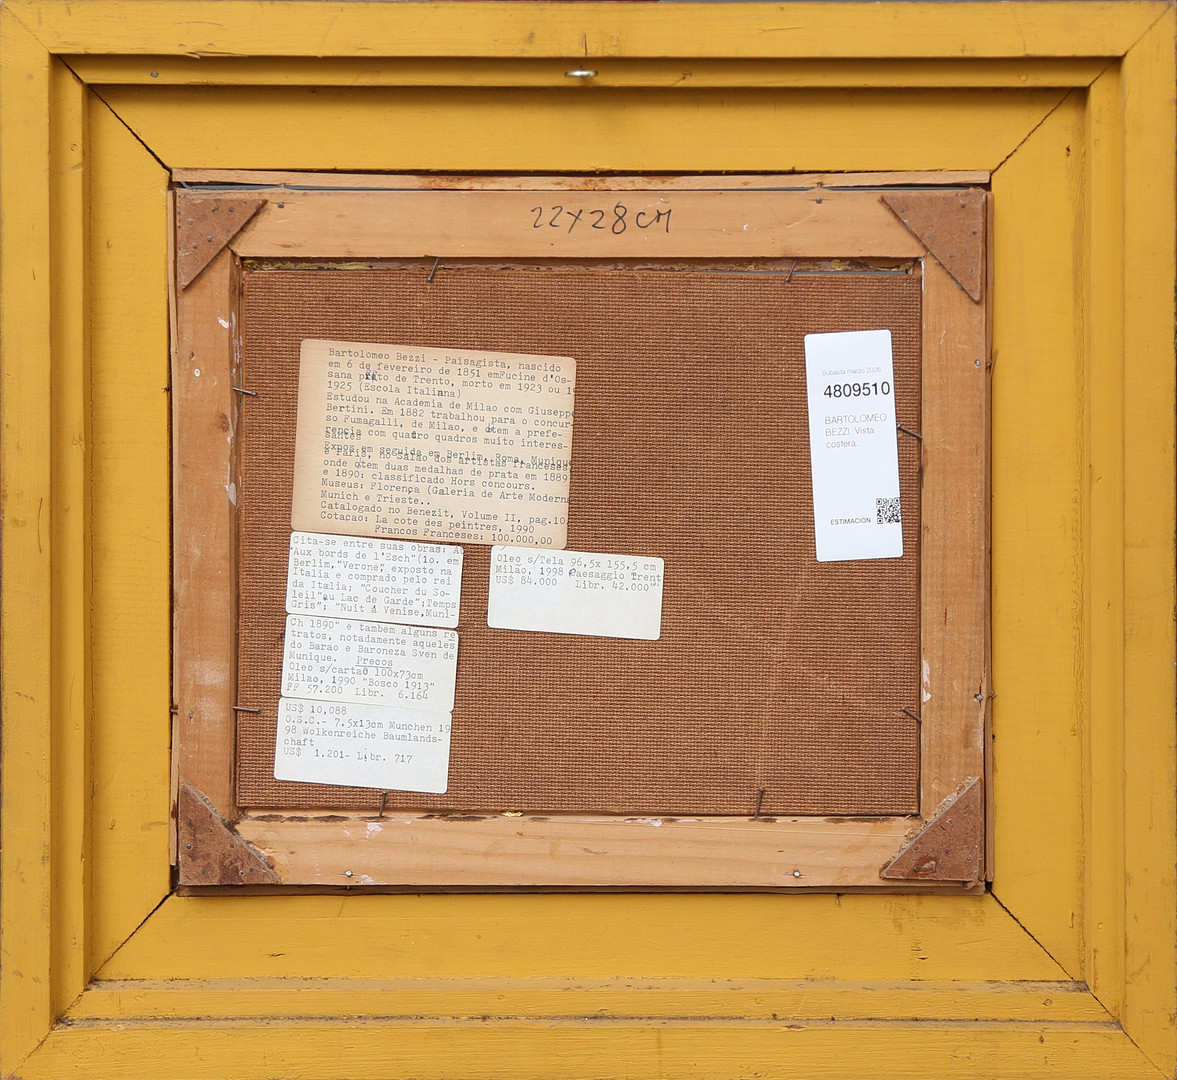 22x28cm
Bartolomeo Bezzi - Paisagista, nascido
em 6 de fevereiro de 1851 emFucine d'Os-
sana de Trento, morto em 1923 ou 1
1925 (Escola Italiana)
Estudou na Academia de Milao com Giuseppe
Bertini. Em 1882 trabalhou para o concur-
so Fumagalli, de Milao, e otem a prefe-
rencia com quatro quadros muito interes-
santes
Expos em seguida em Berlim, Roma, Munique
e Paris, no Salao dos artistas franceses,
onde otem duas medalhas de prata em 1889
e 1890; classificado Hors concours.
Museus: Florença (Galeria de Arte Moderna
Munich e Trieste..
Catalogado no Benezit, Volume II, pag.10
Cotaçao: La cote des peintres, 1990
Francos Franceses: 100.000,00
Cita-se entre suas obras:
"Aux bords de l'Esch"(1o. em
Berlim,"Verone", exposto na
Italia e comprado pelo rei
da Italia; "Coucher du So-
leil"au Lac de Garde";Temps
Gris"; "Nuit A Venise,Muni-
Ch 1890" e tambem alguns re
tratos, notadamente aqueles
do Barao e Baroneza Sven de
Munique. Precos
Oleo s/cartaõ 100x73cm
Milao, 1990 "Bosco 1913"
FF 57.200 Libr. 6.164
US$ 10,088
O.S.C.- 7,5x13cm Munchen 19
98 Wolkenreiche Baumlands-
chaft
US$ 1.201- Libr. 717
Oleo s/Tela 96,5x 155,5 cm
Milao, 1998 Paesaggio Trent
US$ 84.000 Libr. 42.000
Subasta marzo 2026
4809510
BARTOLOMEO
BEZZI. Vista
costera.
ESTIMACIÓN